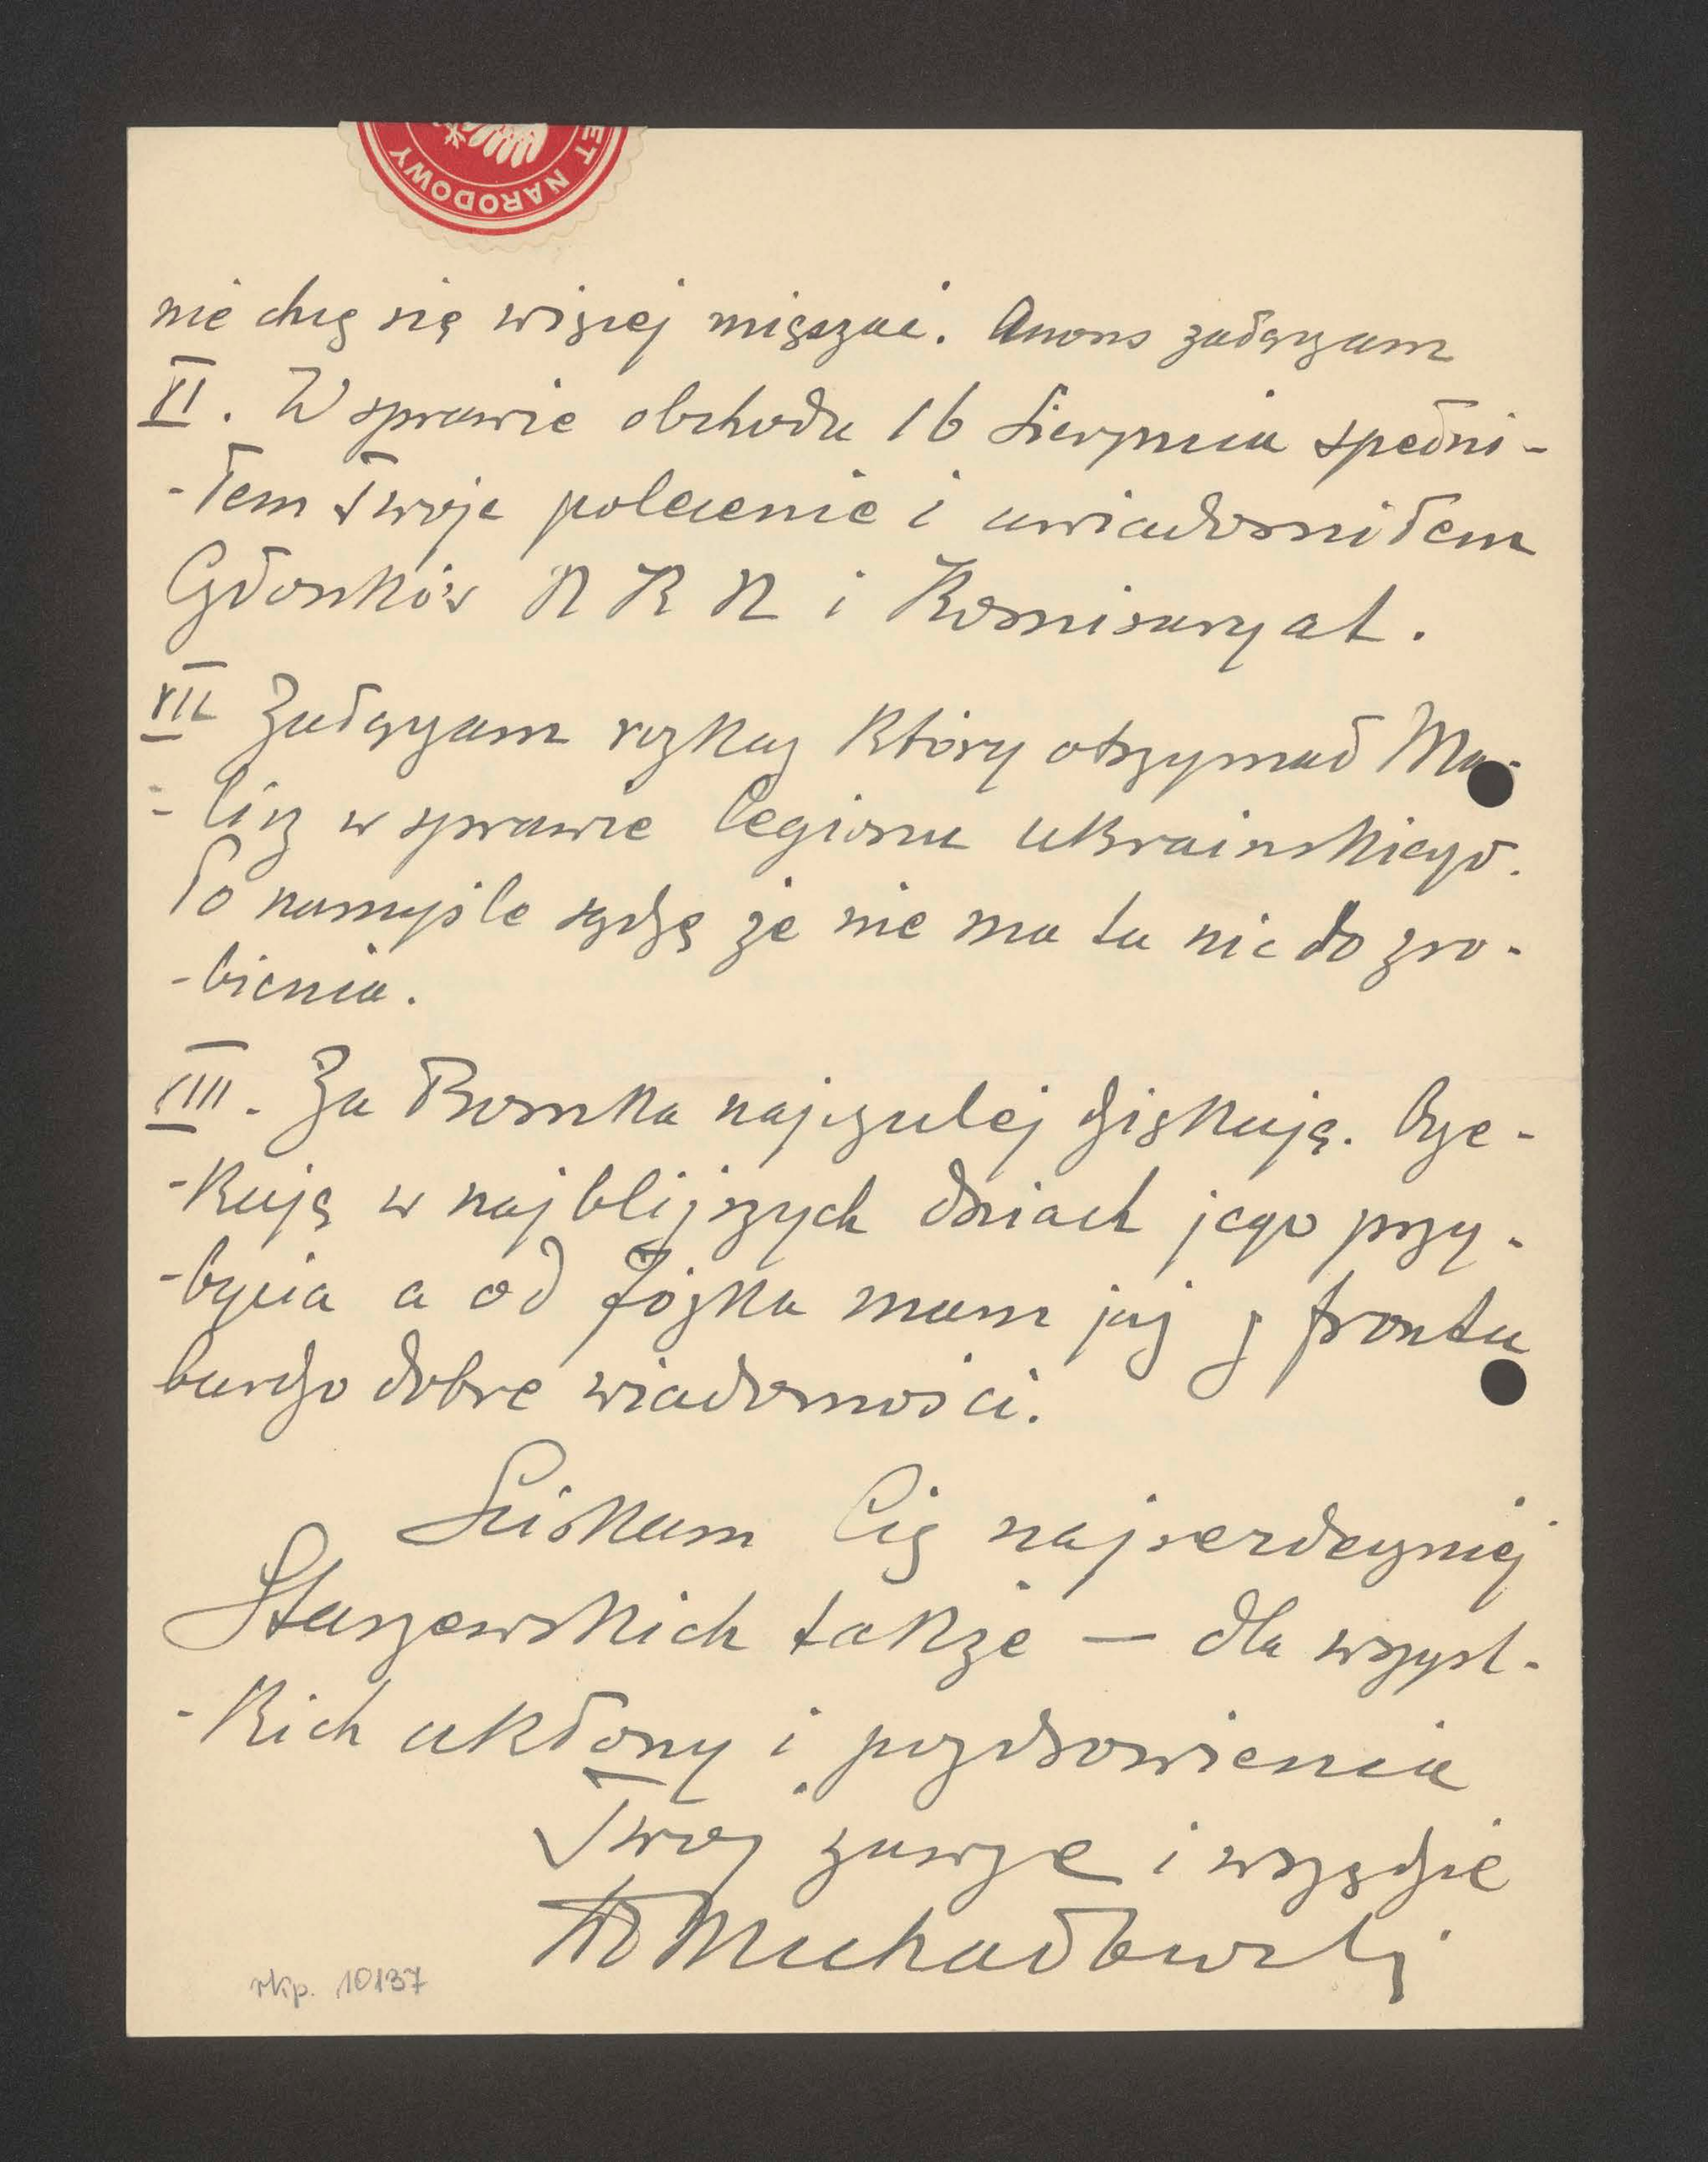 ET NARODOWY
nie chcę się więcej mięszać. Anons załączam
VI. W sprawie obchodu 16 Sierpnia spełni-
-łem Twoje polecenie i uwiadomiłem
Członków N K N i Komisaryat.
VII Załączam rozkaz który otrzymał Ma-
-licz w sprawie legionu ukrainskiego.
Po namyśle sądzę że nie ma tu nic do zro-
-bienia.
VIII. Za Romka najczulej dziękuję. Ocze-
-kuję w najbliższych dniach jego przy-
-bycia a od Józka mam już z frontu
bardzo dobre wiadomości.
Sciskam Cię najserdeczniej
Staszewskich także — dla wszyst-
-kich ukłony i pozdrowienia
Twój zawsze i wszędzie
Michałowski
rkp. 10137